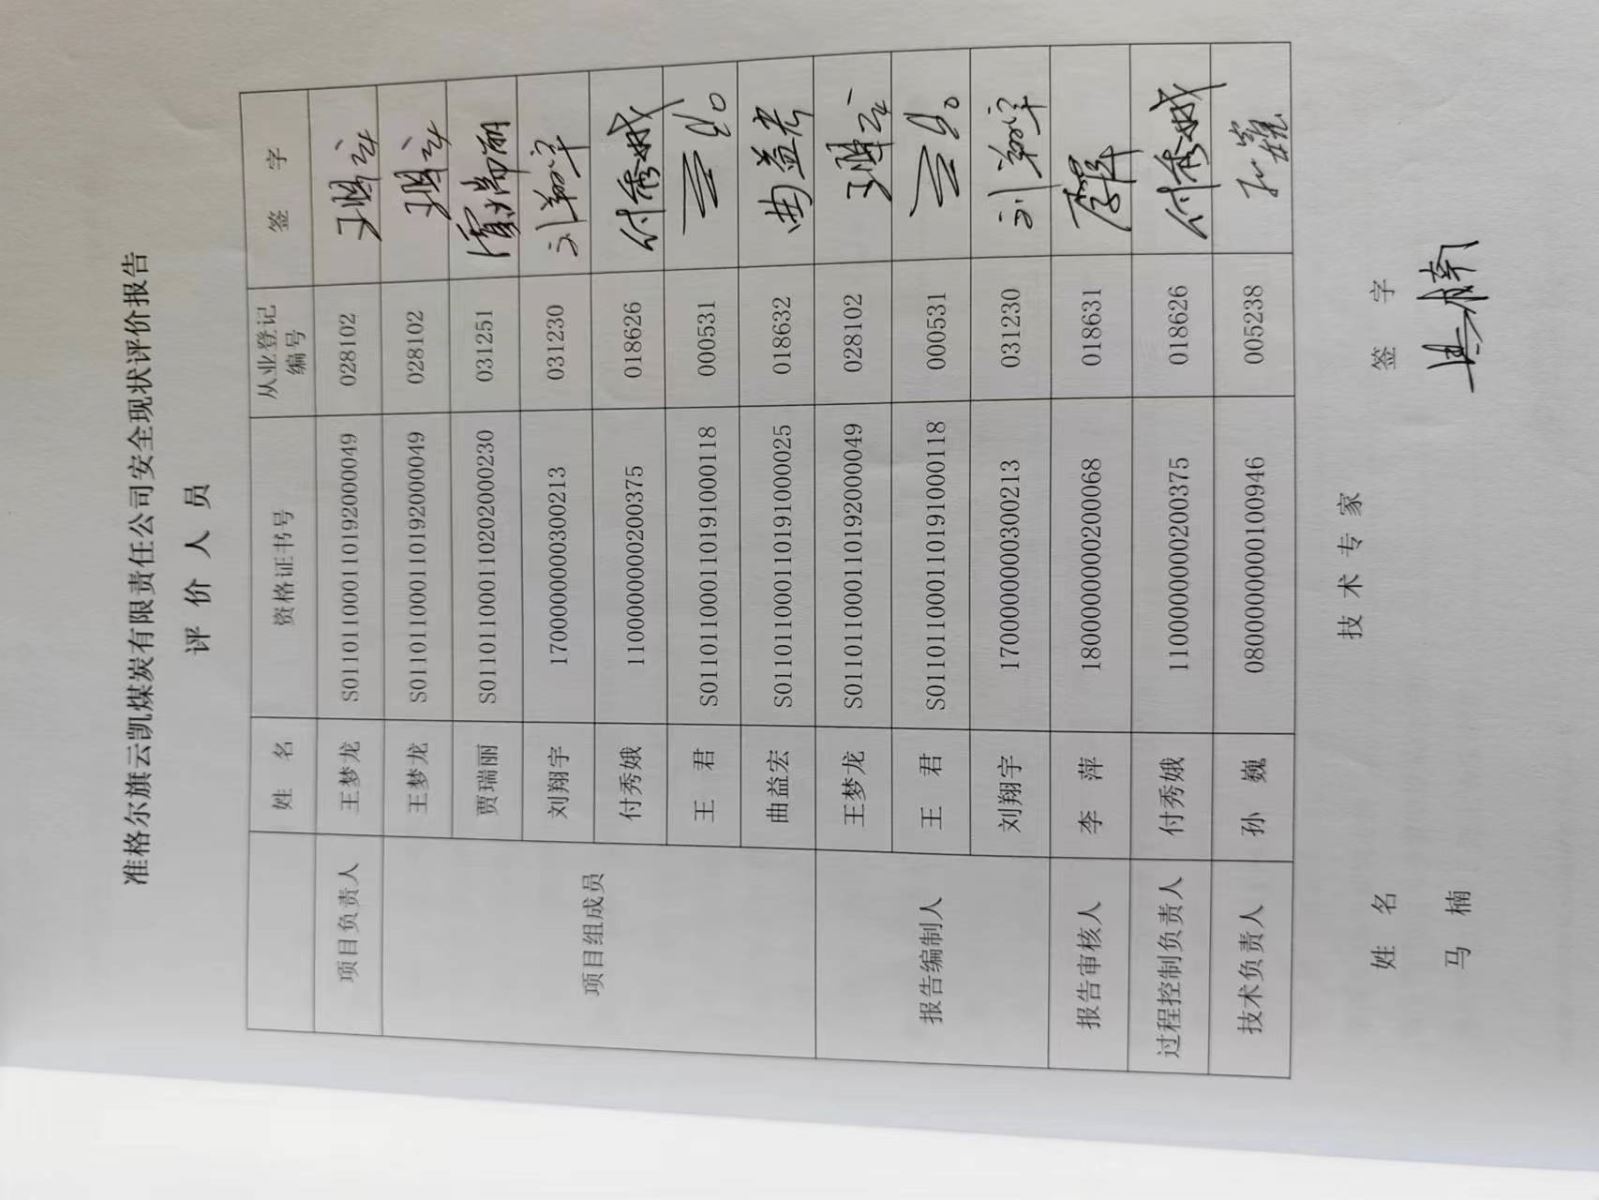 准格尔旗云凯煤炭有限责任公司安全现状评价报告
评 价 人 员
姓 名 资格证书号 从业登记编号 签 字
项目负责人 王梦龙 S011011000110192000049 028102
项目组成员 王梦龙 S011011000110192000049 028102
贾瑞丽 S011011000110202000230 031251 贾瑞丽
刘翔宇 1700000000300213 031230 刘翔宇
付秀娥 1100000000200375 018626 付秀娥
王 君 S011011000110191000118 000531
曲益宏 S011011000110191000025 018632 曲益宏
报告编制人 王梦龙 S011011000110192000049 028102
王 君 S011011000110191000118 000531
刘翔宇 1700000000300213 031230 刘翔宇
报告审核人 李 萍 1800000000200068 018631 李萍
过程控制负责人 付秀娥 1100000000200375 018626 付秀娥
技术负责人 孙 巍 0800000000100946 005238 孙巍
技 术 专 家
姓 名 签 字
马 楠 马楠